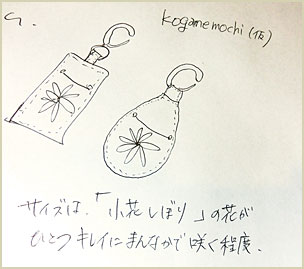 kogamemochi (仮)
サイズは、「小花しぼり」の花が
ひとつキレイにまんなかで咲く程度.